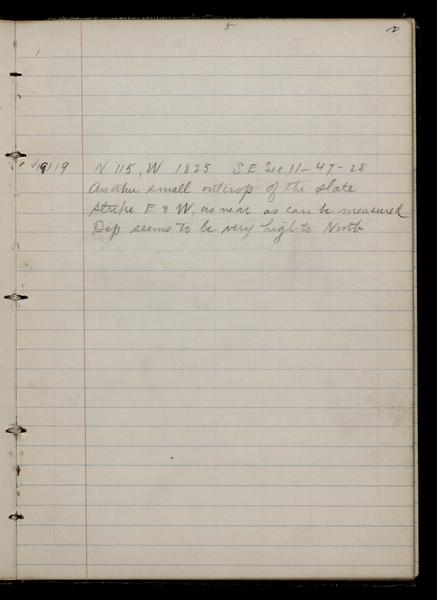 5
2
1
19119 N 115, W 1825 S E Sec 11-47-28
Another small outcrop of the slate
Strike E & W, as near as can be measured
Dip seems to be very high to North